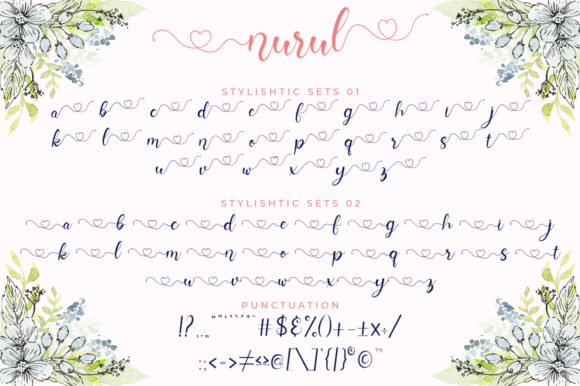 nurul
STYLISHTIC SETS 01
a b c d e f g h i j
k l m n o p q r s t
u v w x y z
STYLISHTIC SETS 02
a b c d e f g h i j
k l m n o p q r s t
u v w x y z
PUNCTUATION
#$&%()+-±x÷/
:;<=>≠≤≥@[\]^{|}®©™